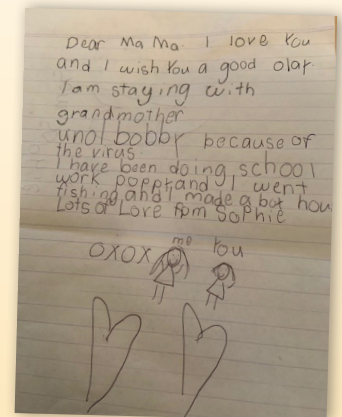 Dear Mama I love You
and I wish You a good olay.
I am staying with
grandmother
unol bobby because of
the virus.
I have been doing school
work poppy and I went
fishing and I made a bat hou
Lots of Love from Sophie
me You
OXOX